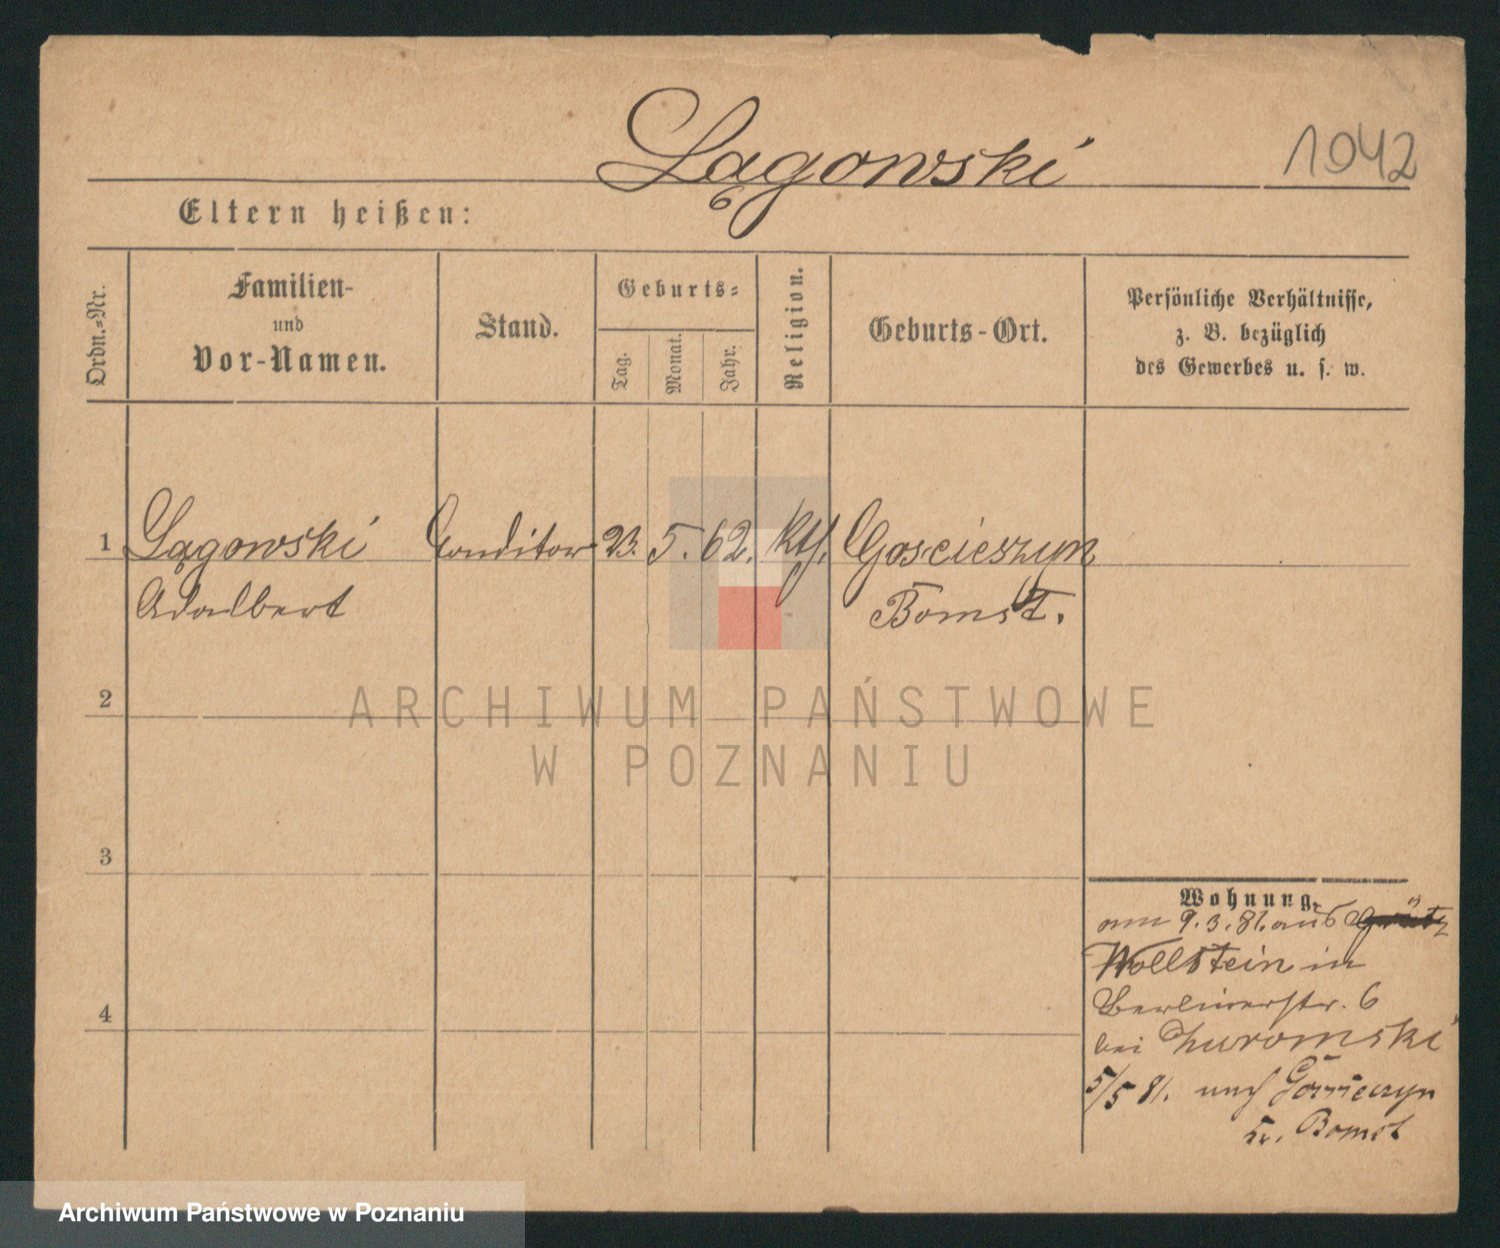 Łągowski
1042
Eltern heißen:
Ordn.=Nr.
Familien-
und
Vor-Namen.
Stand.
Geburts=
Tag.
Monat.
Jahr.
Religion.
Geburts-Ort.
Persönliche Verhältnisse,
z. B. bezüglich
des Gewerbes u. s. w.
1 Łągowski Conditor 23. 5. 62. kth. Gościeszyn
Adalbert Bomst.
2
3
4
Wohnung.
am 9.3.81. aus Grätz
Wollstein in
Berlinerstr. 6
bei
5/5 81. nach Gościeszyn
Kr. Bomst
ARCHIWUM PAŃSTWOWE
W POZNANIU
Archiwum Państwowe w Poznaniu